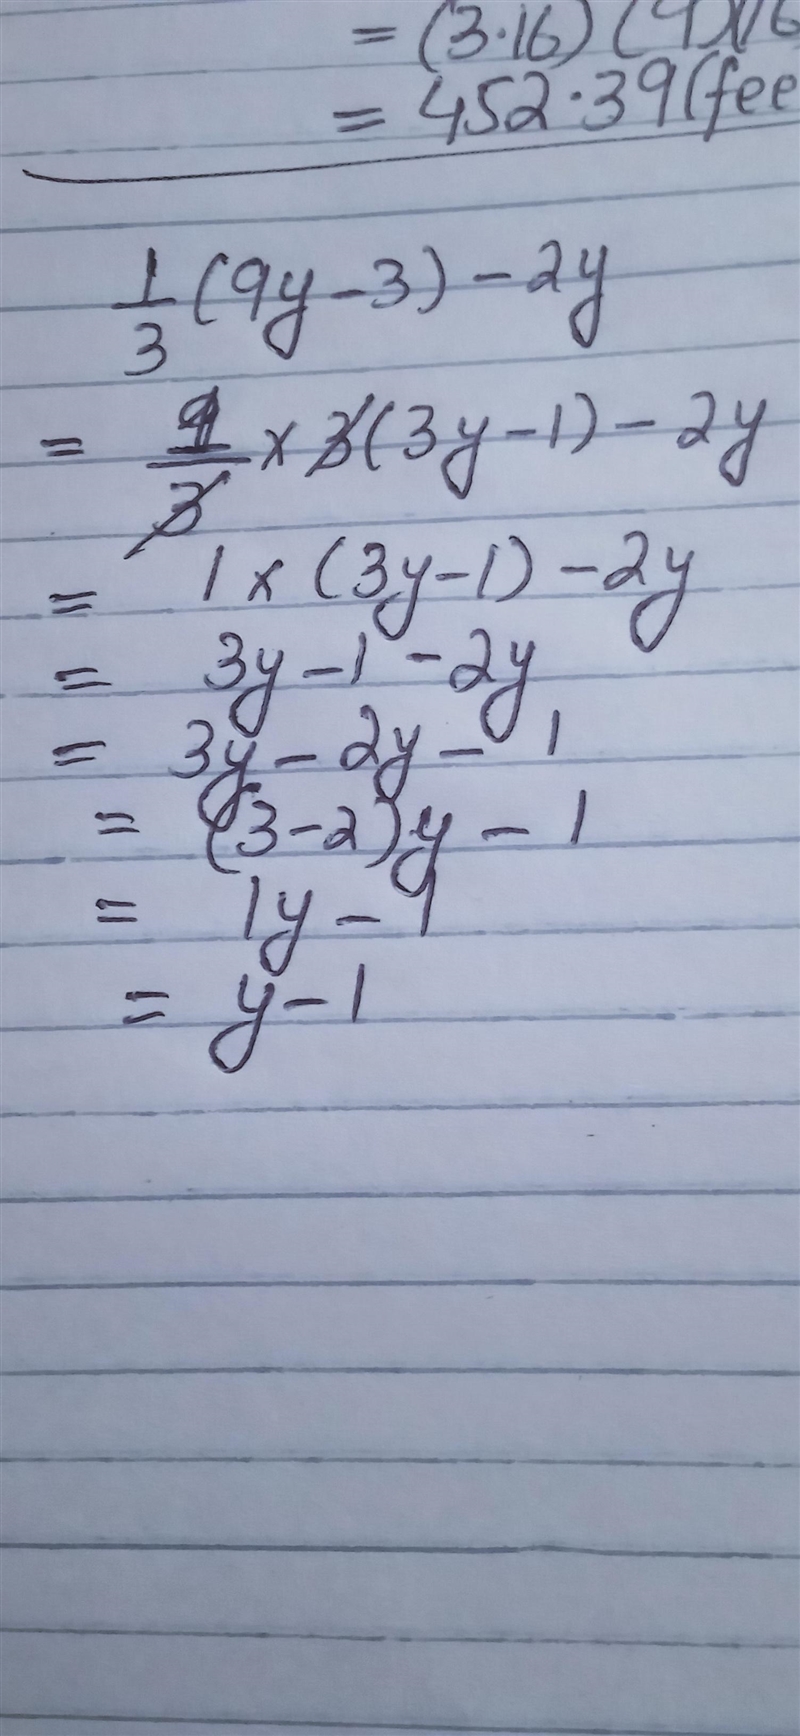 = (3·16) (9)(16
= 452·39 (fee
1/3 (9y - 3) - 2y
= 1/3 × 3(3y - 1) - 2y
= 1 × (3y - 1) - 2y
= 3y - 1 - 2y
= 3y - 2y - 1
= (3 - 2)y - 1
= 1y - 1
= y - 1